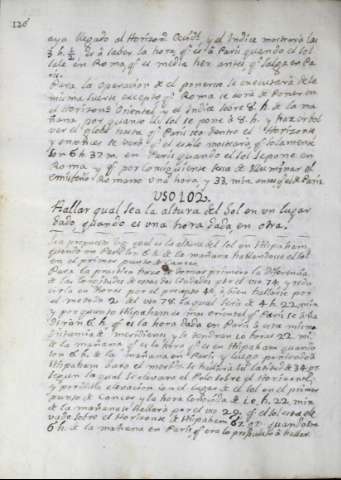 126
aya llegado al Horizon. Occid.l y el Indice mostrará las
3 h. ½ es a saber la hora q.e es en Paris quando el sol
sale en Roma, q.e es media hora antes q.e salga en Pa-
ris.
Para la operacion de el ponerse se executará de la
misma suerte excepto q.e Roma se será de Poner en
el Horizonte Oriental, y el Indice sobre 8. h. de la ma-
ñana por quanto el sol se pone à 8. h. y hazer bol-
ver el globo hasta q.e Paris sea dentro el Horizonte
y entonces se verá q.e el estilo mostrará q.e solamente
son 6 h 37 m. en Paris quando el sol se pone en
Roma y q.e por consiguiente
Romano una hora, y 33. min. antes q.e el de Paris
USO 102.
Hallar qual sea la altura del Sol en un lugar
dado quando es una hora dada en otra.
Sea propuesto qual es la altura del sol en Hispaham
quando en Paris son 6. h. de la mañana hallandose el sol
en el primer punto de Cancer
Para la practica hase de tomar primero la diferencia
de las longitudes de estas dos ciudades por el uso 74, y redu-
cirla en Horas por el precepto 40, o bien hallarla por
el modo 2 del uso 78. la qual será de 4 h. 22 min.
y por quanto Hispaham es mas oriental q.e Paris se aña-
dirán 6. h. q.e es la hora dada en Paris a esta misma
distancia de meridianos y se tendran 10 horas 22 mi.
de la mañana q.e es la hora q.e es en Hispaham quando
son 6. h. de la mañana en Paris y luego
Hispaham bajo el meridi. se hallara su latitud de 34. gr.
segun la qual se elevará el Polo sobre el Horizonte,
y por dicha elevacion se à el lugar de el sol en el primer
punto de Cancer, y la hora conocida de 10. h. 22. min.
de la mañana se hallará por el uso 22. q.e el sol esta ele-
vado sobre el Horizonte de Hispaham 67. gr. quando son
6 h. de la mañana en Paris q.e era lo propuesto à hallar.